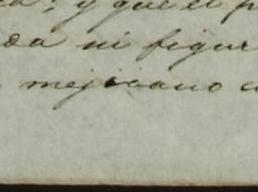 ; y que el p
da ni figur
mejicano